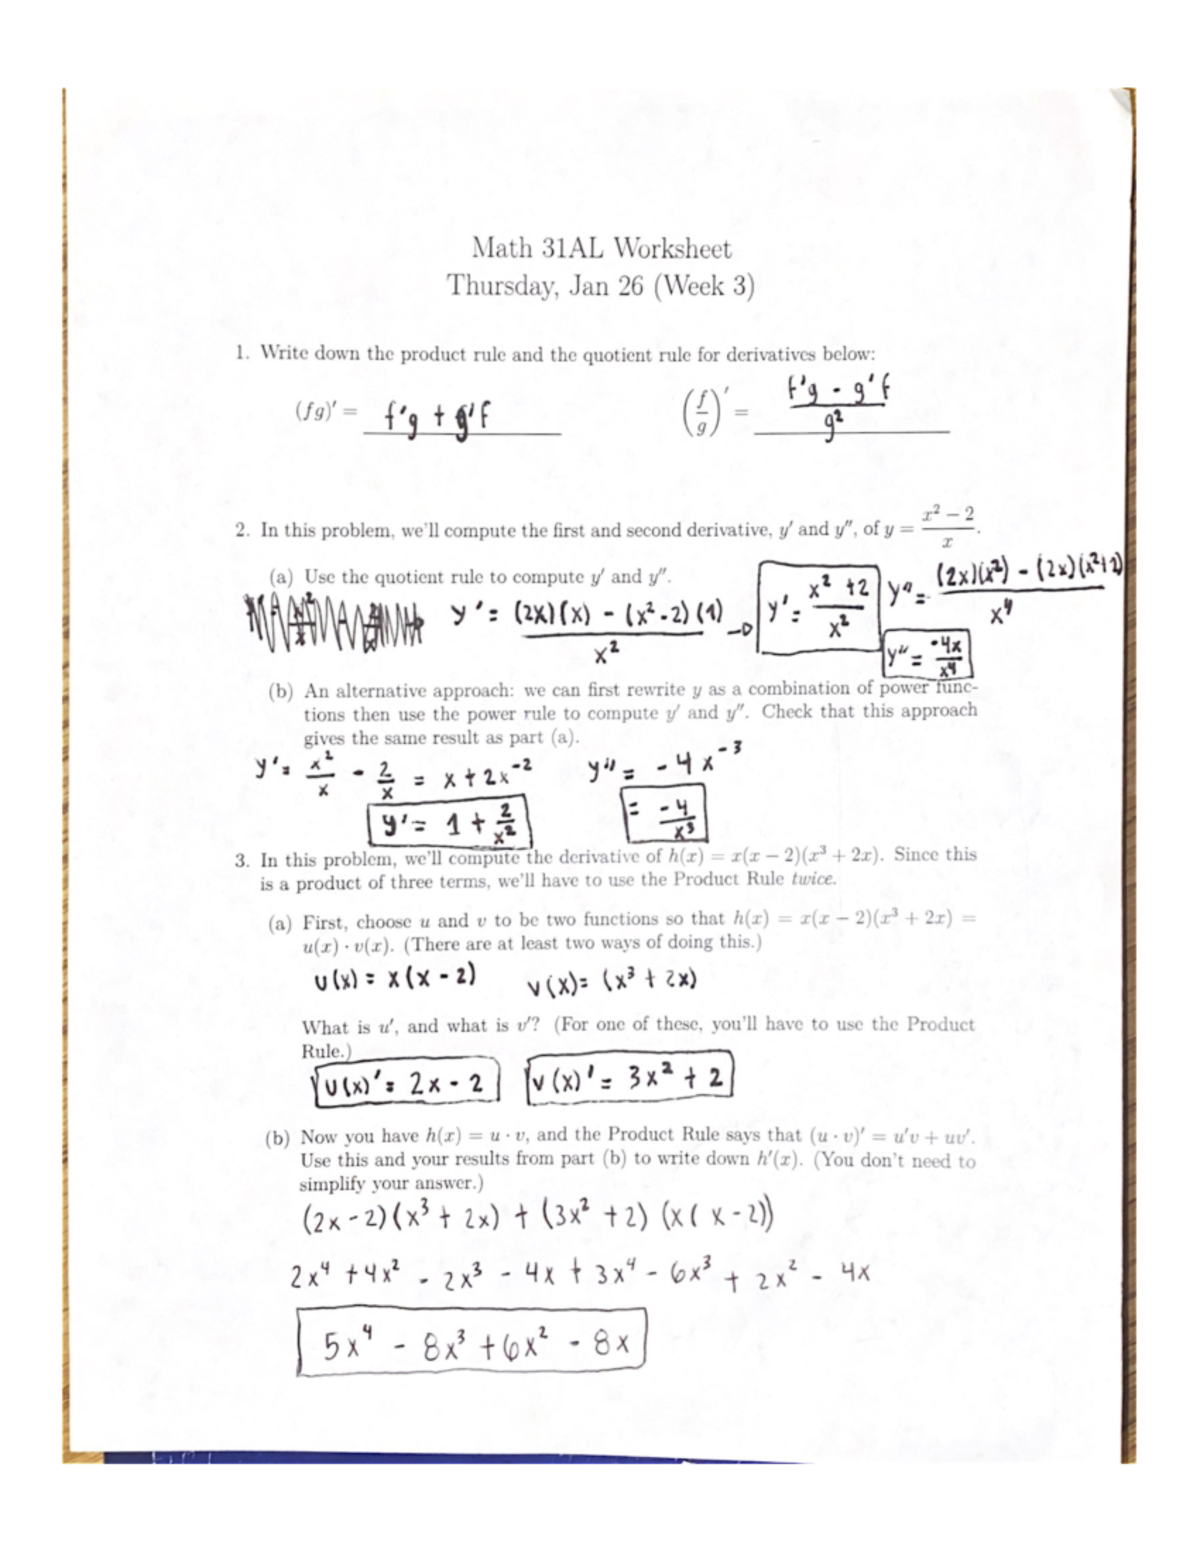 Math 31AL Worksheet
Thursday, Jan 26 (Week 3)
1. Write down the product rule and the quotient rule for derivatives below:
(fg)′ = f'g + g'f (f/g)′ = (f'g - g'f)/g²
2. In this problem, we'll compute the first and second derivative, y′ and y″, of y = (x² − 2)/x.
(a) Use the quotient rule to compute y′ and y″.
y' = ((2x)(x) - (x²-2)(1))/x² → y' = (x² +2)/x² y" = ((2x)(x²) - (2x)(x²+2))/x⁴
y" = -4x/x⁴
(b) An alternative approach: we can first rewrite y as a combination of power func-
tions then use the power rule to compute y′ and y″. Check that this approach
gives the same result as part (a).
y' = x²/x - 2/x = x + 2x⁻² y" = -4x⁻³
y' = 1 + 2/x² = -4/x³
3. In this problem, we'll compute the derivative of h(x) = x(x − 2)(x³ + 2x). Since this
is a product of three terms, we'll have to use the Product Rule twice.
(a) First, choose u and v to be two functions so that h(x) = x(x − 2)(x³ + 2x) =
u(x) · v(x). (There are at least two ways of doing this.)
u(x) = x(x - 2) v(x) = (x³ + 2x)
What is u′, and what is v′? (For one of these, you'll have to use the Product
Rule.)
u(x)' = 2x - 2 v(x)' = 3x² + 2
(b) Now you have h(x) = u · v, and the Product Rule says that (u · v)′ = u′v + uv′.
Use this and your results from part (b) to write down h′(x). (You don't need to
simplify your answer.)
(2x - 2)(x³ + 2x) + (3x² + 2)(x(x - 2))
2x⁴ + 4x² - 2x³ - 4x + 3x⁴ - 6x³ + 2x² - 4x
5x⁴ - 8x³ + 6x² - 8x